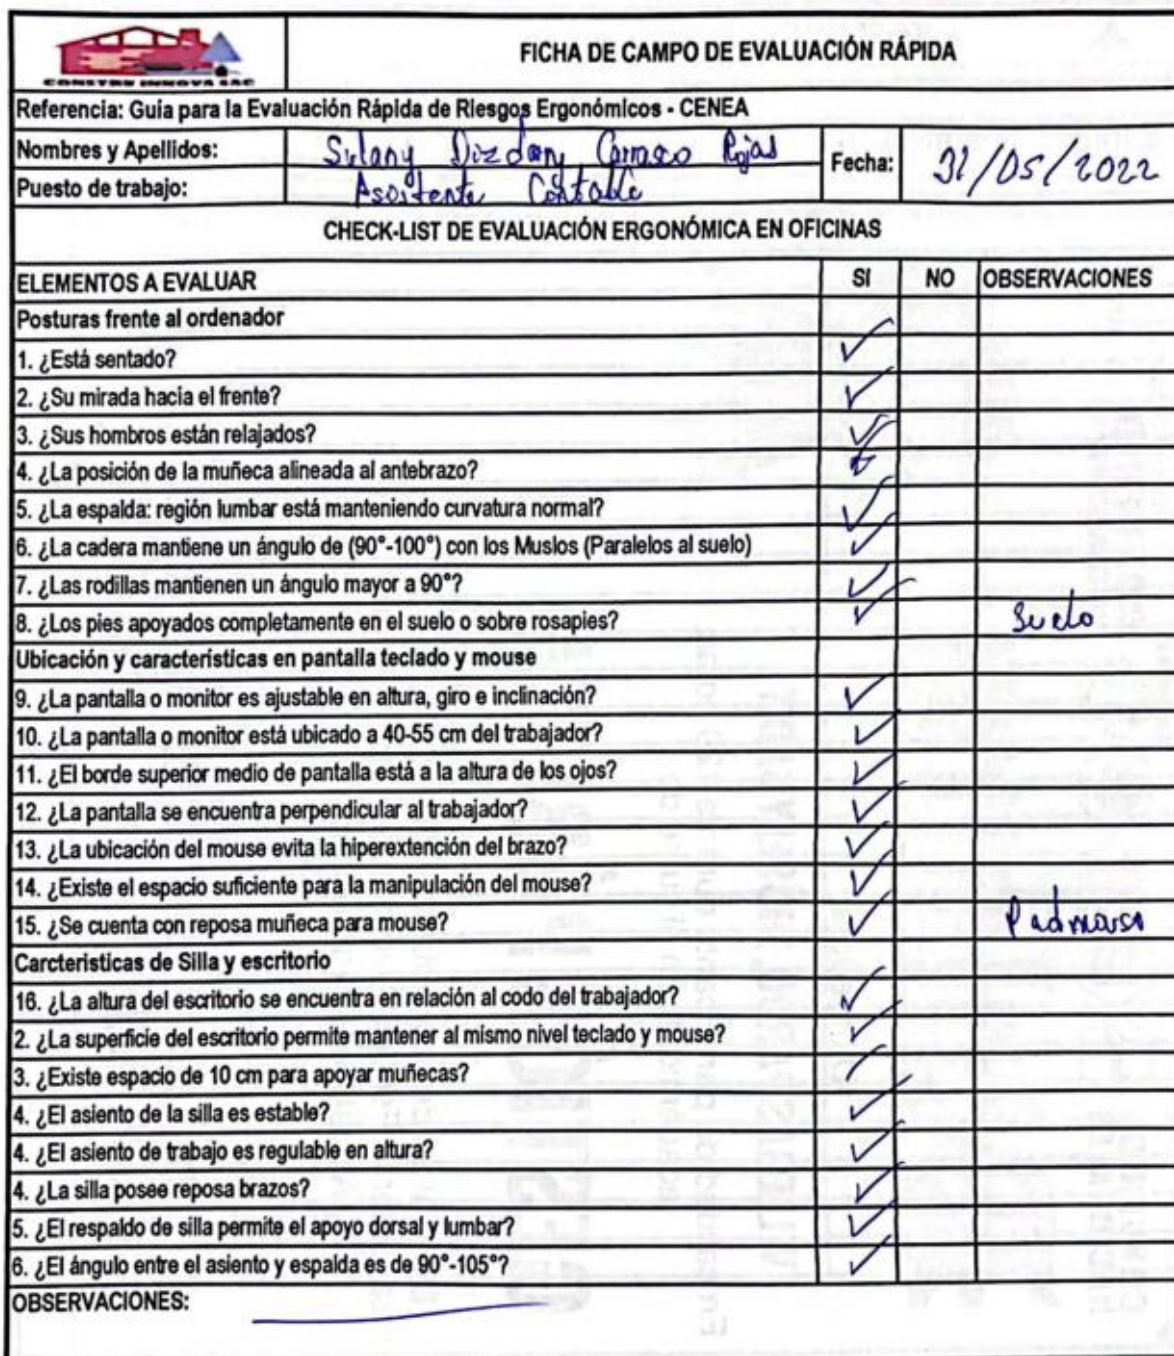 CONSTRU INNOVA SAC
FICHA DE CAMPO DE EVALUACIÓN RÁPIDA
Referencia: Guia para la Evaluación Rápida de Riesgos Ergonómicos - CENEA
Nombres y Apellidos: Sulany Dizdany Carrasco Rojas
Fecha: 31/05/2022
Puesto de trabajo: Asistente Contable
CHECK-LIST DE EVALUACIÓN ERGONÓMICA EN OFICINAS
ELEMENTOS A EVALUAR SI NO OBSERVACIONES
Posturas frente al ordenador
1. ¿Está sentado? ✓
2. ¿Su mirada hacia el frente? ✓
3. ¿Sus hombros están relajados? ✓
4. ¿La posición de la muñeca alineada al antebrazo? ✓
5. ¿La espalda: región lumbar está manteniendo curvatura normal? ✓
6. ¿La cadera mantiene un ángulo de (90°-100°) con los Muslos (Paralelos al suelo) ✓
7. ¿Las rodillas mantienen un ángulo mayor a 90°? ✓
8. ¿Los pies apoyados completamente en el suelo o sobre rosapies? ✓ Suelo
Ubicación y características en pantalla teclado y mouse
9. ¿La pantalla o monitor es ajustable en altura, giro e inclinación? ✓
10. ¿La pantalla o monitor está ubicado a 40-55 cm del trabajador? ✓
11. ¿El borde superior medio de pantalla está a la altura de los ojos? ✓
12. ¿La pantalla se encuentra perpendicular al trabajador? ✓
13. ¿La ubicación del mouse evita la hiperextención del brazo? ✓
14. ¿Existe el espacio suficiente para la manipulación del mouse? ✓
15. ¿Se cuenta con reposa muñeca para mouse? ✓ Padmouse
Carcteristicas de Silla y escritorio
16. ¿La altura del escritorio se encuentra en relación al codo del trabajador? ✓
2. ¿La superficie del escritorio permite mantener al mismo nivel teclado y mouse? ✓
3. ¿Existe espacio de 10 cm para apoyar muñecas? ✓
4. ¿El asiento de la silla es estable? ✓
4. ¿El asiento de trabajo es regulable en altura? ✓
4. ¿La silla posee reposa brazos? ✓
5. ¿El respaldo de silla permite el apoyo dorsal y lumbar? ✓
6. ¿El ángulo entre el asiento y espalda es de 90°-105°? ✓
OBSERVACIONES: